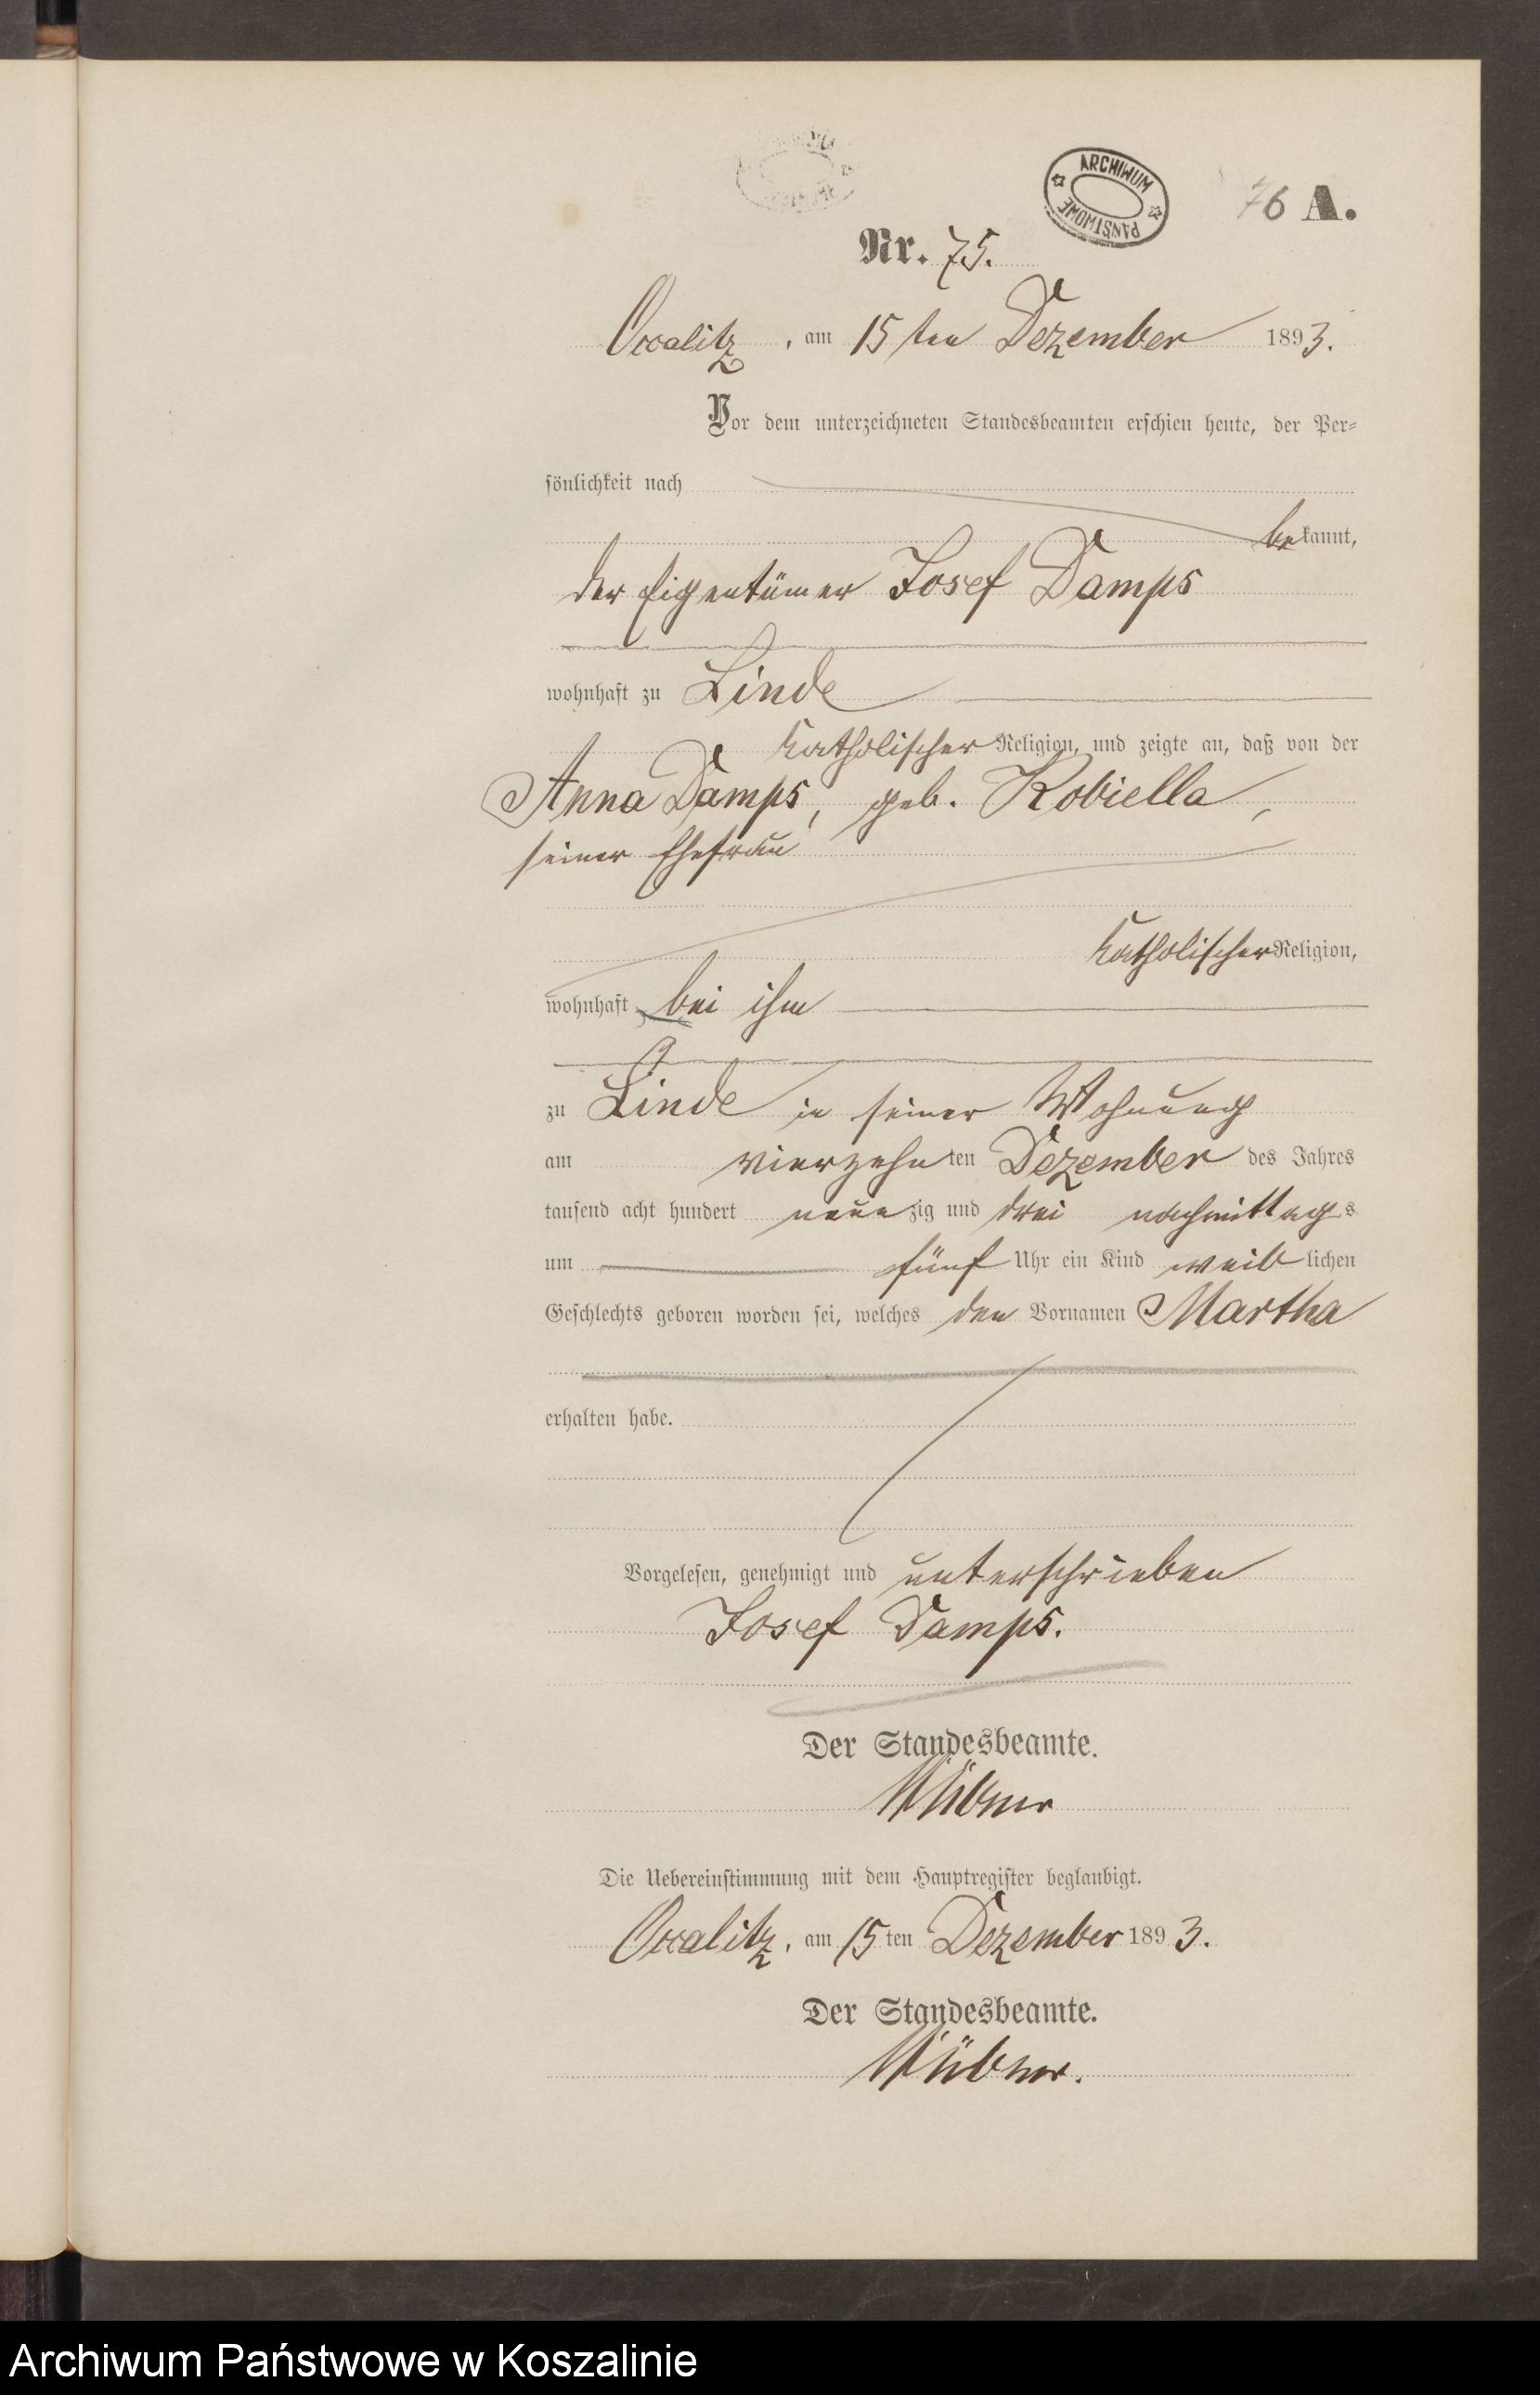 ARCHIWUM PAŃSTWOWE
76 A.
Nr. 75.
Occalitz, am 15ten Dezember 1893.
Vor dem unterzeichneten Standesbeamten erschien heute, der Per-
sönlichkeit nach
bekannt,
der Eigentümer Josef Damps
wohnhaft zu Linde
katholischer Religion, und zeigte an, daß von der
Anna Damps, geb. Kobiella,
seiner Ehefrau
katholischer Religion,
wohnhaft bei ihm
zu Linde in seiner Wohnung
am vierzehnten Dezember des Jahres
tausend acht hundert neunzig und drei nachmittags
um fünf Uhr ein Kind weiblichen
Geschlechts geboren worden sei, welches den Vornamen Martha
erhalten habe.
Vorgelesen, genehmigt und unterschrieben
Josef Damps.
Der Standesbeamte.
Die Uebereinstimmung mit dem Hauptregister beglaubigt.
Occalitz, am 15ten Dezember 1893.
Der Standesbeamte.
Archiwum Państwowe w Koszalinie